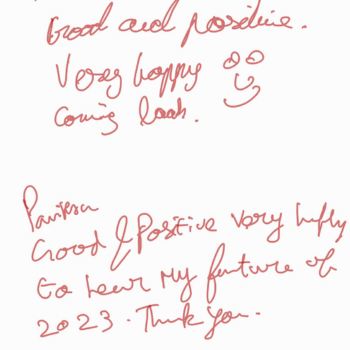 Good and positive.
Very happy
Coming back.
Good & Positive very happy
to hear my future of
2023. Thank you.